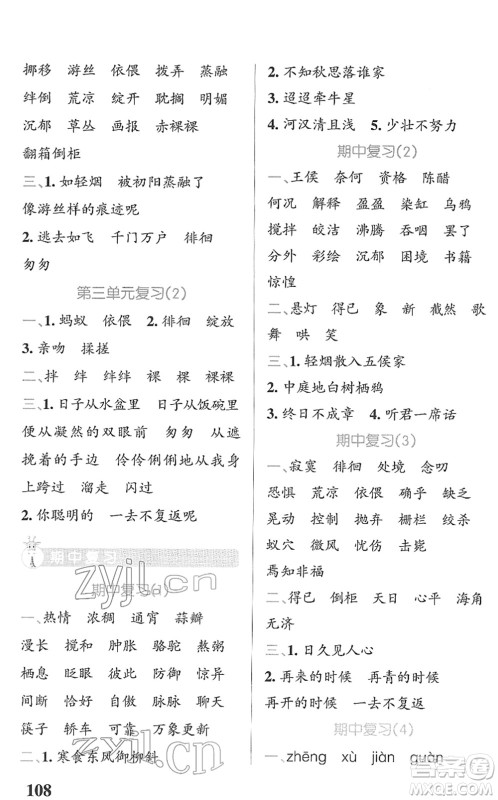 挪移 游丝 依偎 拨弄 蒸融
绊倒 荒凉 绽开 耽搁 明媚
沉郁 草丛 画报 赤裸裸
翻箱倒柜
三、1. 如轻烟 被初阳蒸融了
像游丝样的痕迹呢
2. 逃去如飞 千门万户 徘徊
匆匆
第三单元复习(2)
一、1. 蚂蚁 依偎 2. 徘徊 绽放
3. 亲吻 揉搓
二、拌 绊 绊绊 裸 棵 棵棵
三、1. 日子从水盆里 日子从饭碗里
便从凝然的双眼前 匆匆 从遮
挽着的手边 伶伶俐俐地从我身
上跨过 溜走 闪过
2. 你聪明的 一去不复返呢
期中复习
期中复习(1)
一、热情 浓稠 通宵 蒜瓣
漫长 搅和 肿胀 骆驼 熬粥
栖息 眨眼 彼此 防御 异样
间断 恰好 自献 脉脉 聊天
筷子 轿车 可靠 万象更新
二、1. 寒食东风御柳斜
108
2. 不知秋思落谁家
3. 迢迢牵牛星
4. 河汉清且浅 5. 少壮不努力
期中复习(2)
一、王侯 奈何 资格 陈醋
何况 解释 盈盈 染缸 乌鸦
搅拌 皎洁 沸腾 吞咽 罢了
分外 彩绘 沉郁 困境 书籍
惊惶
二、悬灯 得已 象 新 截然 歌
舞 哄 笑
三、1. 轻烟散入五侯家
2. 中庭地白树栖鸦
3. 终日不成章 4. 听君一席话
期中复习(3)
一、寂寞 徘徊 处境 念叨
恐惧 荒凉 依偎 控制 绽开
晃动 抗议 防御 机械 绞杀
蚁穴 微风 忧伤 凿壁偷光
焉知非福
二、得已 倒柜 天日 心平 海角
无济
三、1. 日久见人心
2. 再来的时候 再青的时候
再开的时候 一去不复返
期中复习(4)
一、zhēng xù jiàn quàn
zyjl.cn
zyjl.cn